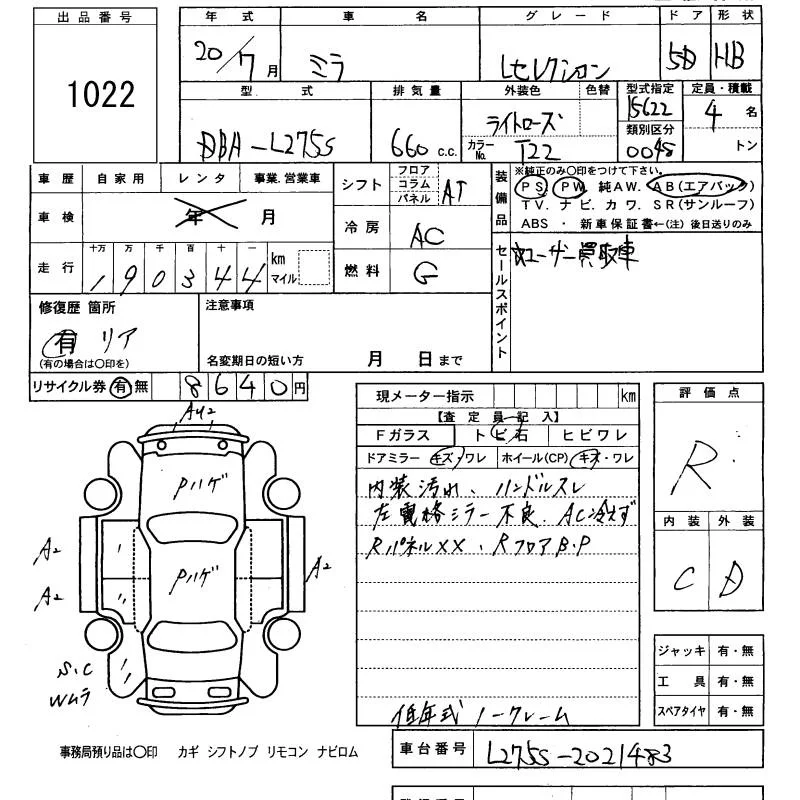 出品番号
1022
年式 車名 グレード ドア 形状
20/7月 ミラ Lセレクション 5D HB
型式 排気量 外装色 色替 型式指定 定員・積載
DBA-L275S 660 c.c. ライトローズ 15622 4名
カラーNo. T22 類別区分 0048 トン
車歴 自家用 レンタ 事業.営業車
車検 年 月
走行 十万 万 千 百 十 一
190344 km マイル
シフト フロア コラム パネル AT
冷房 AC
燃料 G
装備品 ※純正のみ〇印をつけて下さい。
PS PW 純AW. AB(エアバック)
TV. ナビ. カワ. SR(サンルーフ)
ABS ・ 新車保証書←(注) 後日送りのみ
セールスポイント
ユーザー買取車
修復歴 箇所
有 リア
(有の場合は〇印を)
注意事項
名変期日の短い方 月 日まで
リサイクル券 有 無 8640円
現メーター指示 km
【査定員記入】
Fガラス トビ石 ヒビワレ
ドアミラー キズ・ワレ ホイール(CP) キズ・ワレ
内装汚れ、ハンドルスレ
左電格ミラー不良、AC冷えず
RパネルXX、RフロアB.P
低年式 ノークレーム
評価点
R
内装 外装
C D
ジャッキ 有・無
工具 有・無
スペアタイヤ 有・無
AU2
Pハゲ
A2
A2
A2
Pハゲ
S.C
Wムラ
事務局預り品は〇印 カギ シフトノブ リモコン ナビロム
車台番号 L275S-2021483